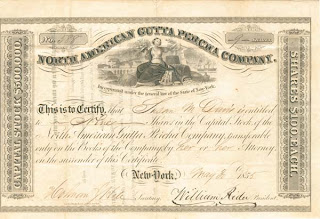 NORTH AMERICAN GUTTA PERCHA COMPANY.
Incorporated under the general law of the State of New York.
CAPITAL STOCK $500,000.
SHARES $100 EACH.
This is to Certify, that is entitled
to Shares in the Capital Stock of the
North American Gutta Percha Company, transferable
only on the Books of the Company by her or her Attorney
on the surrender of this Certificate.
New-York, May 1855
Secretary William Rider President